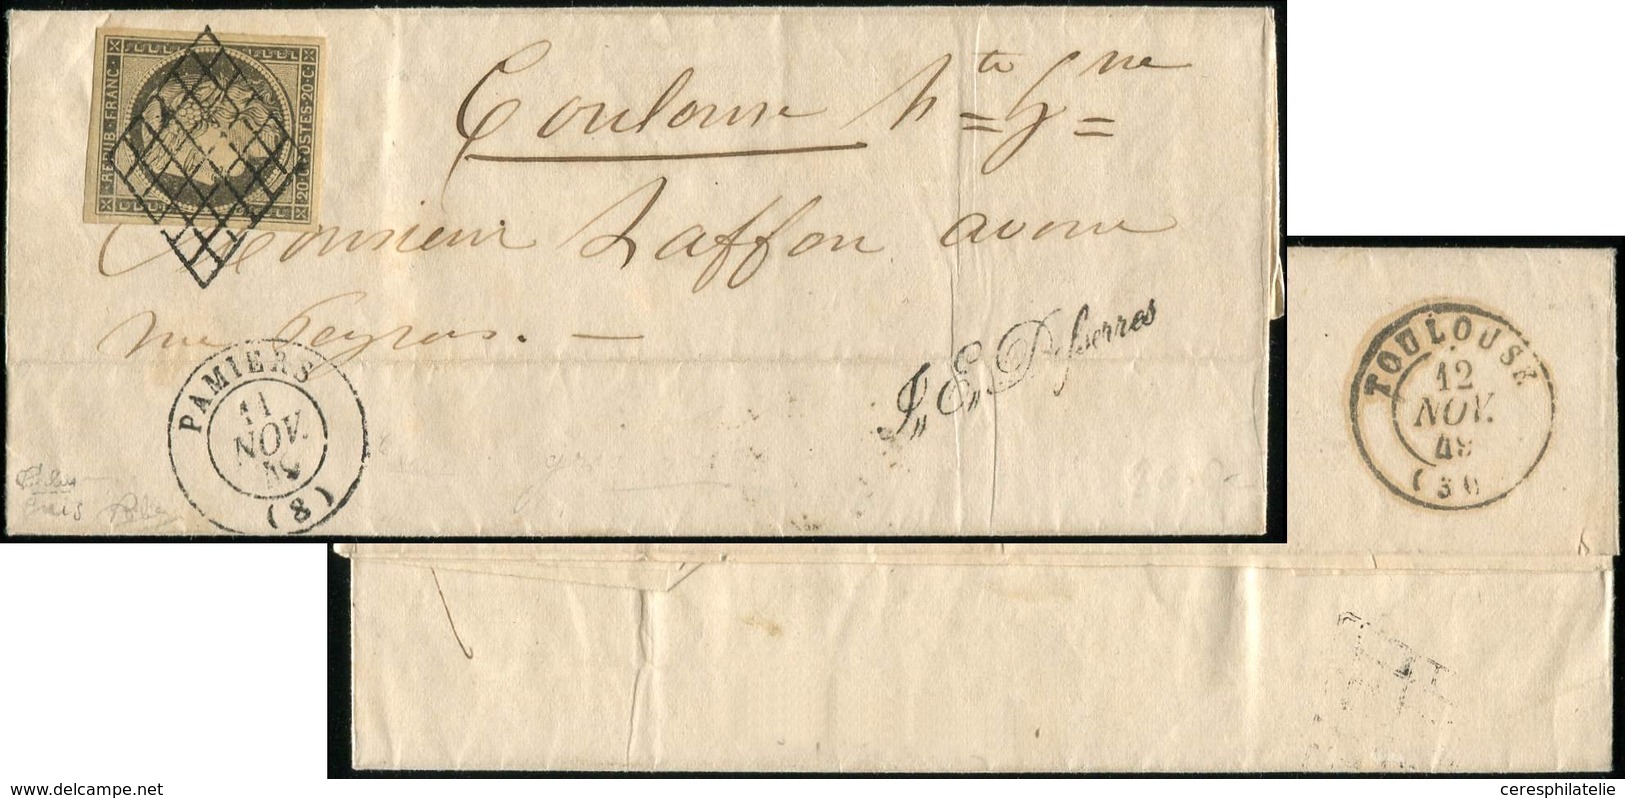 REPUB·FRANC·
20·C·POSTES·20·C·
Toulouse Hte Gne
Monsieur Laffon avoué
rue Peyras. —
PAMIERS
11
NOV.
49
(8)
J„ E„ Desserres
TOULOUSE
12
NOV.
49
(30)
www.delcampe.net
ceresphilatelie